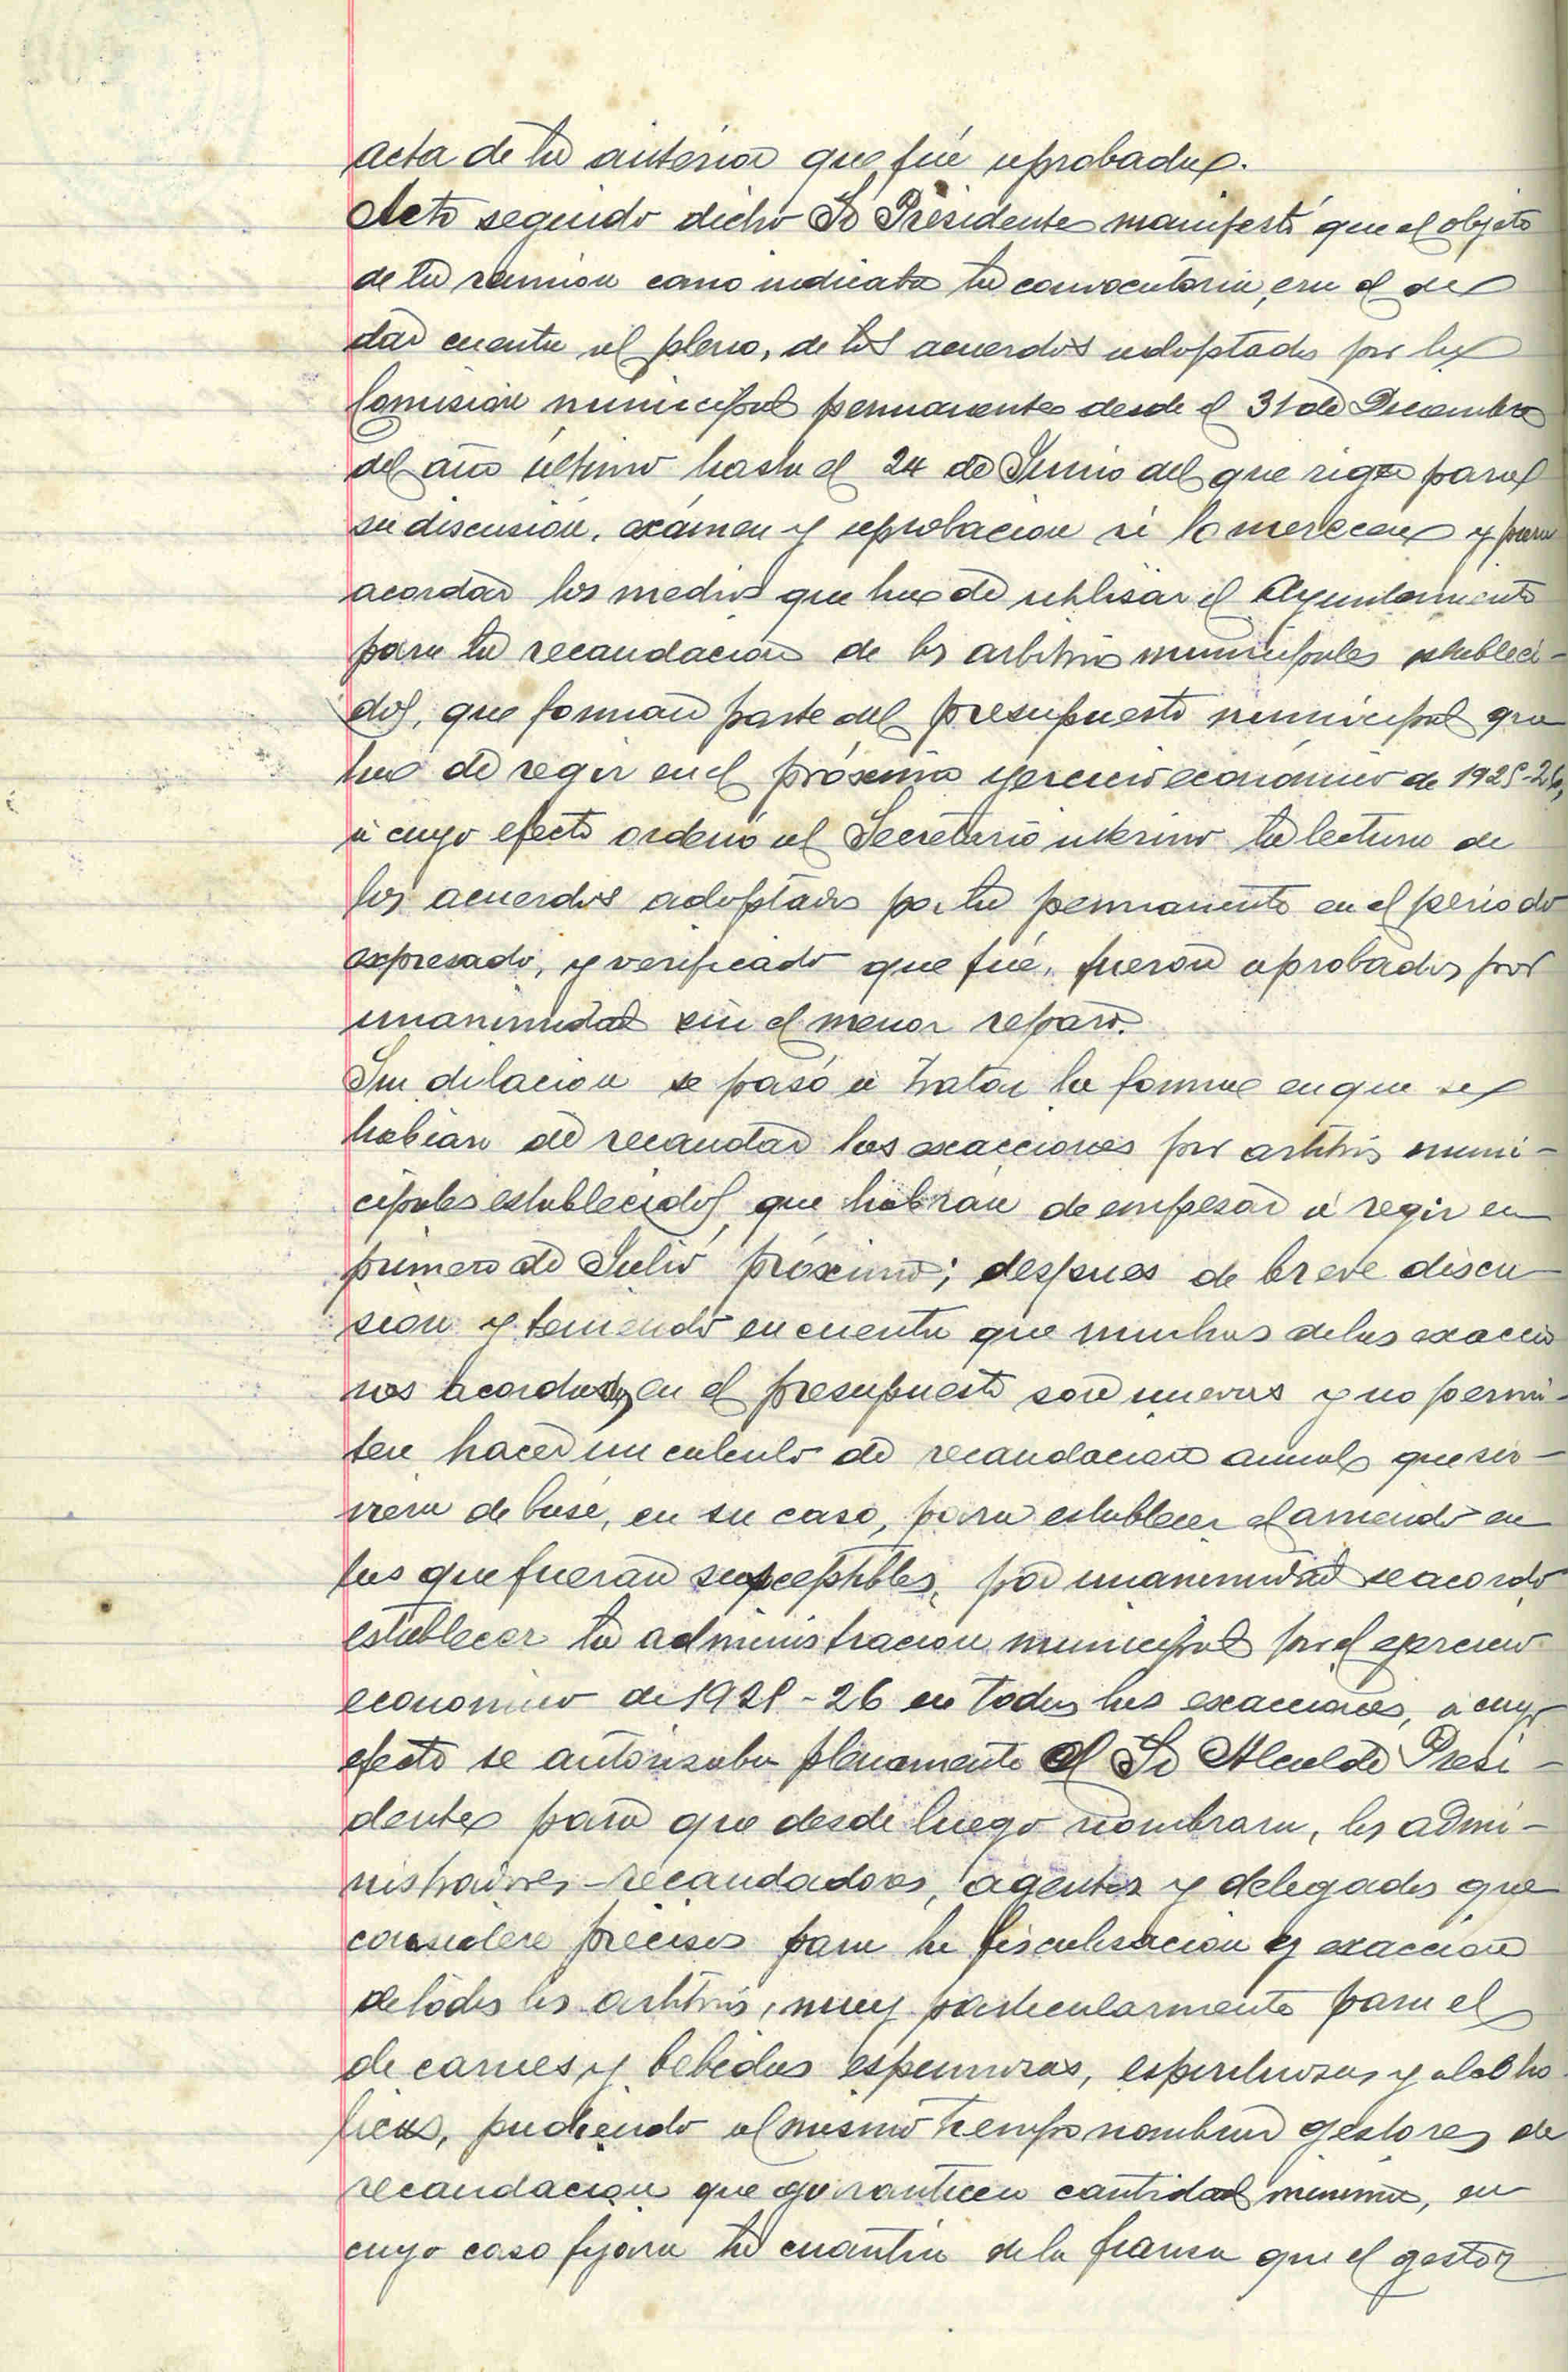 acta de la anterior que fué aprobada.
Acto seguido dicho Sr Presidente manifestó que el objeto
de la reunion como indicaba la convocatoria, era el de
dar cuenta al pleno, de los acuerdos adoptados por la
Comision municipal permanente desde el 31 de Diciembre
del año último hasta el 24 de Junio del que rige para
su discusión, exámen y aprobacion si lo merecen y para
acordar los medios que ha de utilisar el Ayuntamiento
para la recaudacion de los arbitrios municipales estableci-
dos, que forman parte del presupuesto municipal que
ha de regir en el próximo ejercicio económico de 1925-26,
á cuyo efecto ordenó al Secretario interino la lectura de
los acuerdos adoptados por la permanente en el periodo
expresado, y verificado que fué, fueron aprobados por
unanimidad sin el menor reparo.
Sin dilacion se pasó á tratar la forma en que se
habian de recaudar las exacciones por arbitrios muni-
cipales establecidos que habrán de empesar á regir en
primero de Julio próximo; despues de breve discu-
sion y teniendo en cuenta que muchas de las exaccio
nes acordadas en el presupuesto son nuevas y no permi-
ten hacer un calculo de recaudacion anual que sir-
viera de base, en su caso, para establecer el arriendo en
las que fueran susceptibles, por unanimidad se acordo
establecer la administracion municipal por el ejercicio
economico de 1925-26 en todas las exacciones, á cuyo
efecto se autorisaba plenamente al Sr Alcalde Presi-
dente para que desde luego nombrara, los admi-
nistradores-recaudadores, agentes y delegados que
considere precisos para la fiscalisacion y exaccion
de todos los arbitrios, muy particularmente para el
de carnes y bebidas espumosas, espirituosas y alcoho
licas, pudiendo al mismo tiempo nombrar gestores de
recaudacion que garanticen cantidad minima, en
cuyo caso fijara la cuantia de la fianza que el gestor